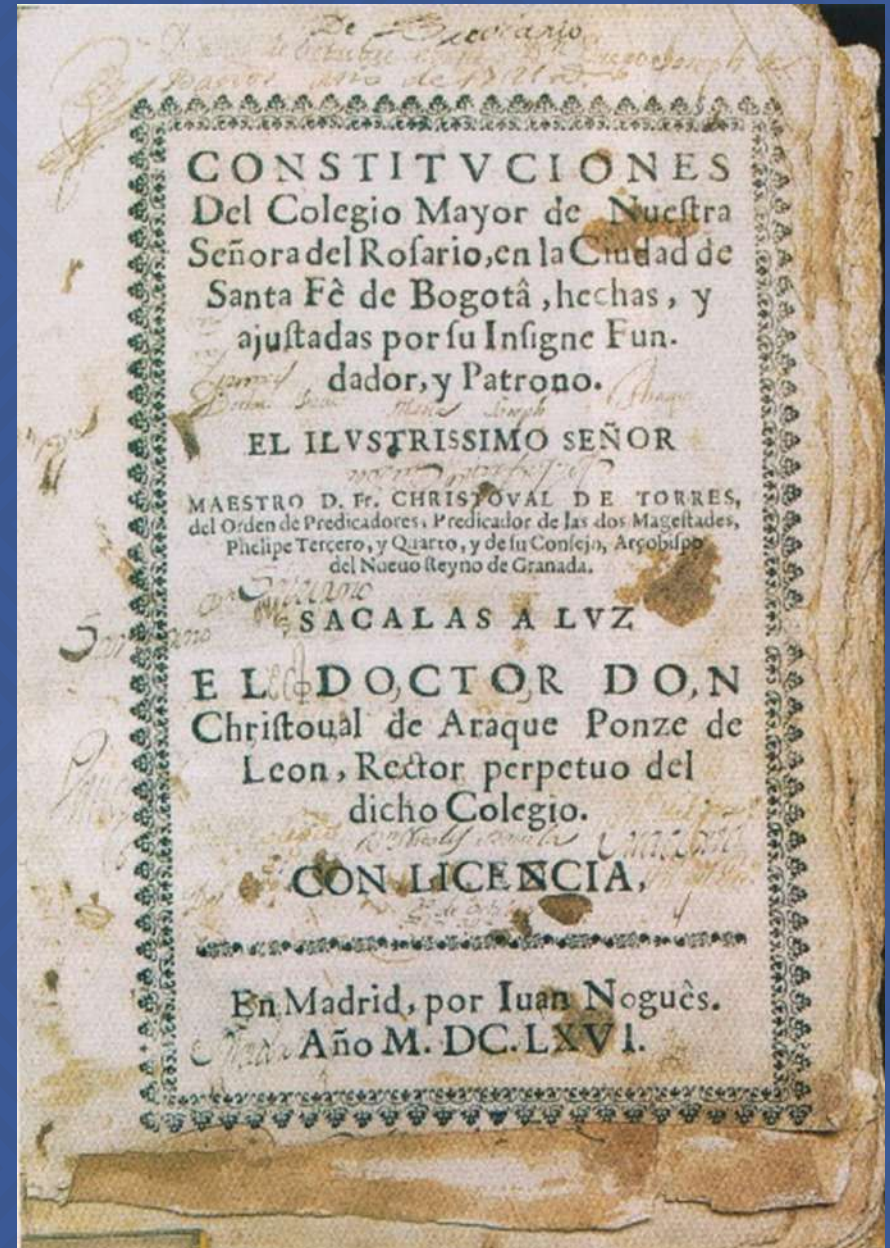 De
CONSTITVCIONES
Del Colegio Mayor de Nueſtra
Señora del Roſario, en la Ciudad de
Santa Fè de Bogotâ, hechas, y
ajuſtadas por ſu Inſigne Fun-
dador, y Patrono.
EL ILVSTRISSIMO SEÑOR
MAESTRO D. Fr. CHRISTOVAL DE TORRES,
del Orden de Predicadores, Predicador de las dos Mageſtades,
Phelipe Tercero, y Quarto, y de ſu Conſejo, Arçobiſpo
del Nueuo Reyno de Granada.
SACALAS A LVZ
EL DOCTOR DON
Chriſtoual de Araque Ponze de
Leon, Rector perpetuo del
dicho Colegio.
CON LICENCIA,
En Madrid, por Iuan Noguès.
Año M. DC. LXVI.